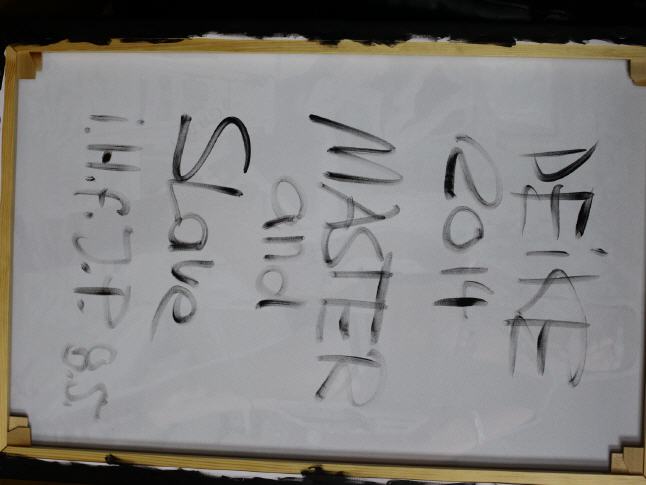 DEiKE
2014
MASTER
and
Slave
i.H.f.J.P. 8.5.